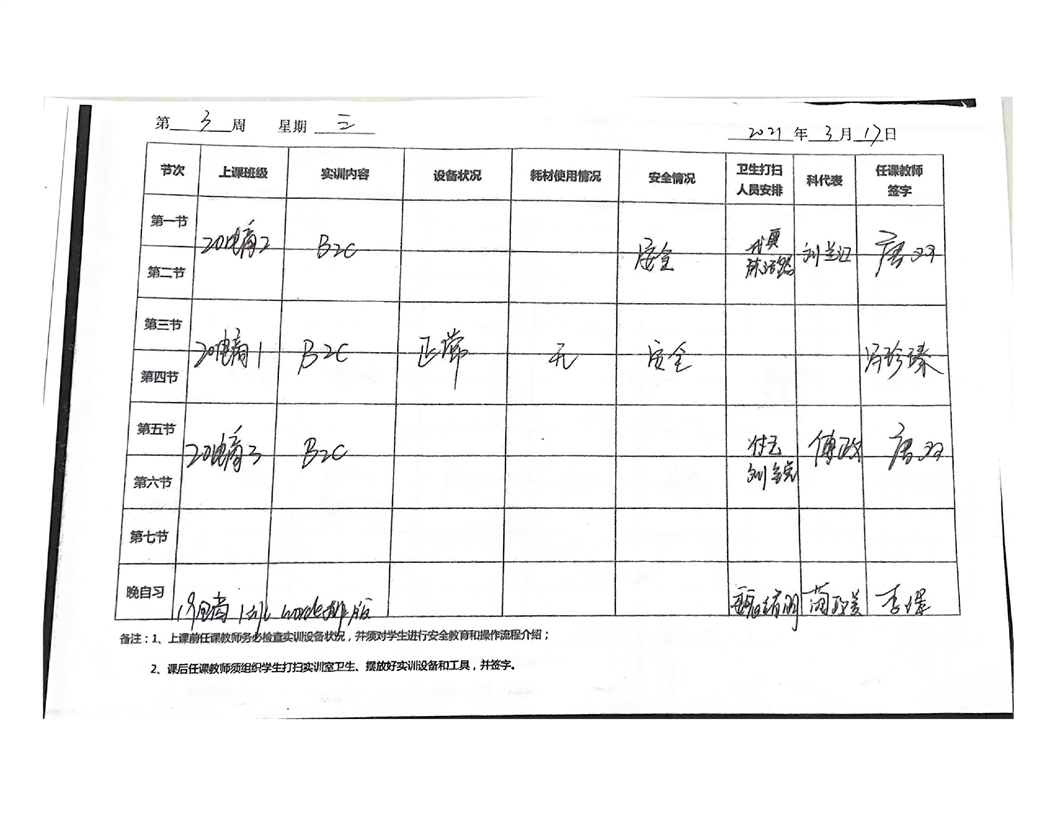 第 3 周 星期 三
2021 年 3 月 17 日
节次 上课班级 实训内容 设备状况 耗材使用情况 安全情况 卫生打扫人员安排 科代表 任课教师签字
第一节
20电商2 B2C 安全 刘兰 唐双
第二节
第三节
20电商1 B2C 正常 无 安全 冯珍臻
第四节
第五节
20电商3 B2C 傅政 唐双
第六节 刘
第七节
晚自习 19电商1 排版 李
备注:1、上课前任课教师务必检查实训设备状况,并须对学生进行安全教育和操作流程介绍;
2、课后任课教师须组织学生打扫实训室卫生、摆放好实训设备和工具,并签字。